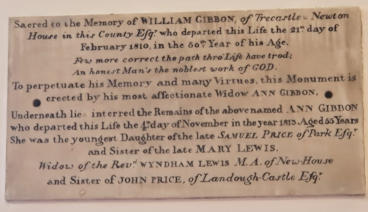 Sacred to the Memory of WILLIAM GIBBON, of Trecastle & Newton
House in this County Esqr. who departed this Life the 21st day of
February 1810, in the 50th Year of his Age.
Few more correct the path thro' Life have trod;
An honest Man's the noblest work of GOD.
To perpetuate his Memory and many Virtues, this Monument is
erected by his most affectionate Widow ANN GIBBON,
Underneath lie interred the Remains of the above named ANN GIBBON
who departed this Life the 4th day of November in the year 1813. Aged 55 Years
She was the youngest Daughter of the late SAMUEL PRICE of Park Esqr.
and Sister of the late MARY LEWIS,
Widow of the Revd. WYNDHAM LEWIS M.A. of New-House
and Sister of JOHN PRICE, of Landough-Castle Esqr.